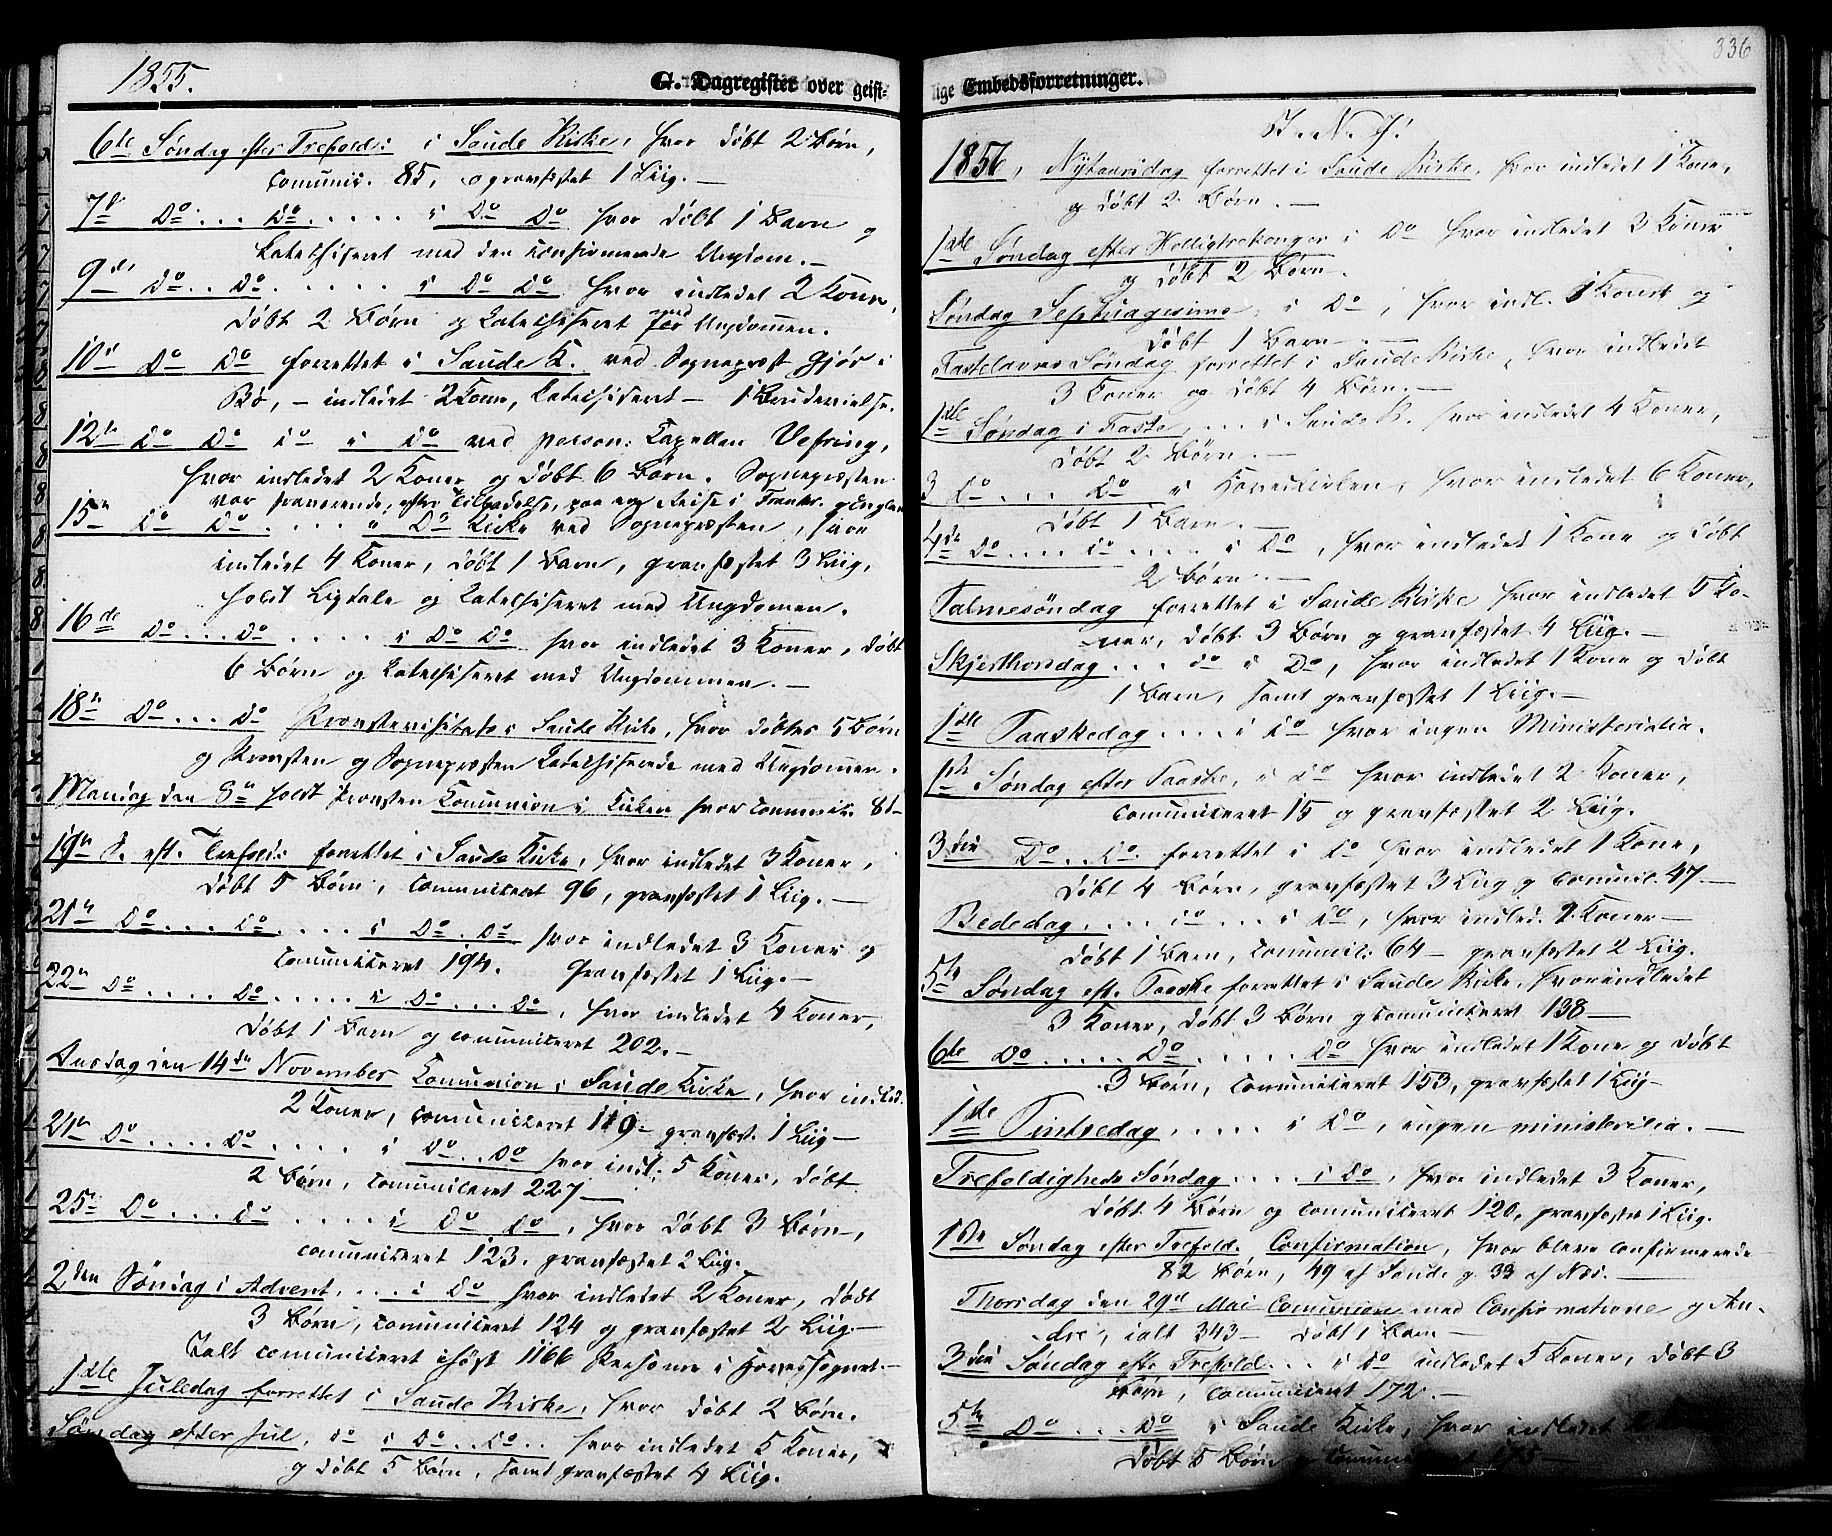 1855.
G. Dagregister over geist-
6te Søndag efter Trefold: i Saude Kirke, hvor døbt 2 Børn,
comunic. 85, gravfæstet 1 Liig. —
7de Do ... do ..... i Do Do hvor døbt 1 Barn og
Katechiseret med den confirmerede Ungdom. —
9de Do .. Do ...... i Do Do hvor indledet 2 Koner,
døbt 2 Børn og Katechiseret med Ungdommen.
10de Do Do forrettet i Saude K. ved Sognepræst Gjør i
Bø, — indledet 2 Koner, Katechiseret — 1 Brudevielse.
12te Do Do do i do ved person: Capellan Vefring,
hvor indledet 2 Koner og døbt 6 Børn. Sognepræsten
var fraværende, efter Tilladelse, paa en Reise i
15de do Do. .... i Do Kirke ved Sognepræsten, hvor
indledet 4 Koner, døbt 1 Barn, gravfæstet 3 Liig,
holdt Ligtale og Katechiseret med Ungdomen.
16de Do ... Do ..... i Do Do hvor indledet 3 Koner, døbt
6 Børn og Katechiseret med Ungdommen. —
18de Do ... Do Provstevisitats i Saude Kirke, hvor døbtes 5 Børn
og Provsten og Sognepræsten Katechiserede med Ungdommen.
Mandag den 8de holdt Provsten Comunion i Kirken hvor comunic. 81 —
19de S. eft. Trefold: forrettet i Saude Kirke, hvor indledet 3 Koner,
døbt 5 Børn, comuniceret 96, gravfæstet 1 Liig. —
21de Do ... do. .... i Do. do hvor indledet 3 Koner og
comuniceret 194. Gravfæstet 1 Liig. —
22de Do .... Do ..... i Do ... Do, hvor indledet 4 Koner,
døbt 1 Barn og comuniceret 202. —
Onsdag den 14de November Comunion i Saude Kirke, hvor indled.
2 Koner, comuniceret 119 — gravfæst. 1 Liig —
24de Do .... Do. .... i Do .. Do hvor indl: 5 Koner, døbt
2 Børn, comuniceret 227 —
25de Do ... do .... i Do do, hvor døbt 3 Børn,
comuniceret 123. gravfæstet 2 Liig.
2den Søndag i Advent, ... i do hvor indledet 2 Koner, døbt
3 Børn, comuniceret 124 og gravfæstet 2 Liig —
Ialt comuniceret ihøst 1166 Personer i Hovedsognet. —
1ste Juledag forrettet i Saude Kirke, hvor døbt 2 Børn.
Søndag efter Jul, do i Do .. do .. hvor indledet 5 Koner,
og døbt 5 Børn, samt gravfæstet 4 Liig.
336
lige Embedsforretninger.
I. N. J!
1856, Nytaarsdag forrettet i Saude Kirke, hvor indledet 1 Kone,
og døbt 2 Børn. —
1ste Søndag efter Helligtrekonger i Do hvor indledet 3 Koner
og døbt 2 Børn.
Søndag Septuagesima, i Do, hvor indl. 1 Kone og
døbt 1 Barn —
Fastelavns Søndag forrettet i Saude Kirke, hvor indledet
3 Koner og døbt 4 Børn. —
1ste Søndag i Faste, ... i Saude K. hvor indledet 4 Koner,
døbt 2 Børn. —
3 Do ... Do i Hovedkirken, hvor indledet 6 Koner,
døbt 1 Barn. —
4de Do .... do ..... i Do, hvor indledet 1 Kone og døbt
2 Børn. —
Palmesøndag forrettet i Saude Kirke hvor indledet 5 Ko-
ner, døbt 3 Børn og gravfæstet 4 Liig. —
Skjerthorsdag ... do i Do, hvor indledet 1 Kone og døbt
1 Barn, samt gravfæstet 1 Liig. —
1ste Paaskedag .... i do hvor ingen Ministerialia.
1ste Søndag efter Paaske, i do hvor indledet 2 Koner,
comuniceret 15 og gravfæstet 2 Liig.
3die Do .. do. forrettet i do hvor indledet 1 Kone,
døbt 4 Børn, gravfæstet 3 Liig og comunic. 47. —
Bededag .... do ... i do, hvor indled. 2 Koner —
døbt 1 Barn, comunic: 64 — gravfæstet 2 Liig.
5te Søndag eft. Paaske forrettet i Saude Kirke, hvor indledet
3 Koner, døbt 3 Børn og comuniceret 138 —
6te Do ..... Do ..... do hvor indledet 1 Kone og døbt
3 Børn, comuniceret 153, gravfæstet 1 Liig —
1ste Pintsedag, .... i do, ingen ministerialia. —
Trefoldigheds Søndag .... i do, hvor indledet 3 Koner,
døbt 4 Børn og comuniceret 120, gravfæstet 1 Liig.
1ste Søndag efter Trefold. Confirmation, hvor bleve confirmerede
82 Børn, 49 af Saude og 33 af Næs. —
Thorsdag den 29de Mai Comunion med Confirmatione og An-
dre, ialt 343 — døbt 1 Barn —
3die Søndag efter Trefold ... i do indledet 5 Koner, døbt 3
Børn, comuniceret 172. —
5te Do ... Do i Saude Kirke, hvor indledet
døbt 5 Børn og comuniceret 175 —